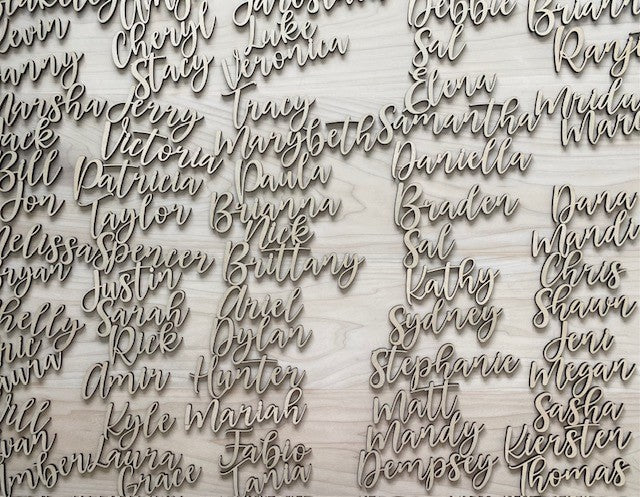 Cheryl
Stacy
Jerry
Victoria
Patricia
Taylor
Spencer
Justin
Sarah
Rick
Amir
Kyle
Laura
Grace
Luke
Veronica
Tracy
Marybeth
Paula
Brianna
Nick
Brittany
Ariel
Dylan
Hunter
Mariah
Fabio
Tania
Debbie
Sal
Elena
Samantha
Daniella
Braden
Sal
Kathy
Sydney
Stephanie
Matt
Mandy
Dempsey
Dana
Chris
Shawn
Jeni
Megan
Sasha
Kiersten
Thomas